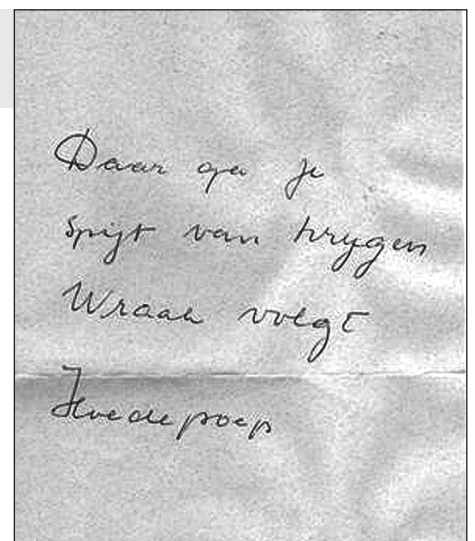 Daar ga je
spijt van krygen
Wraak volgt
Hoedepoep